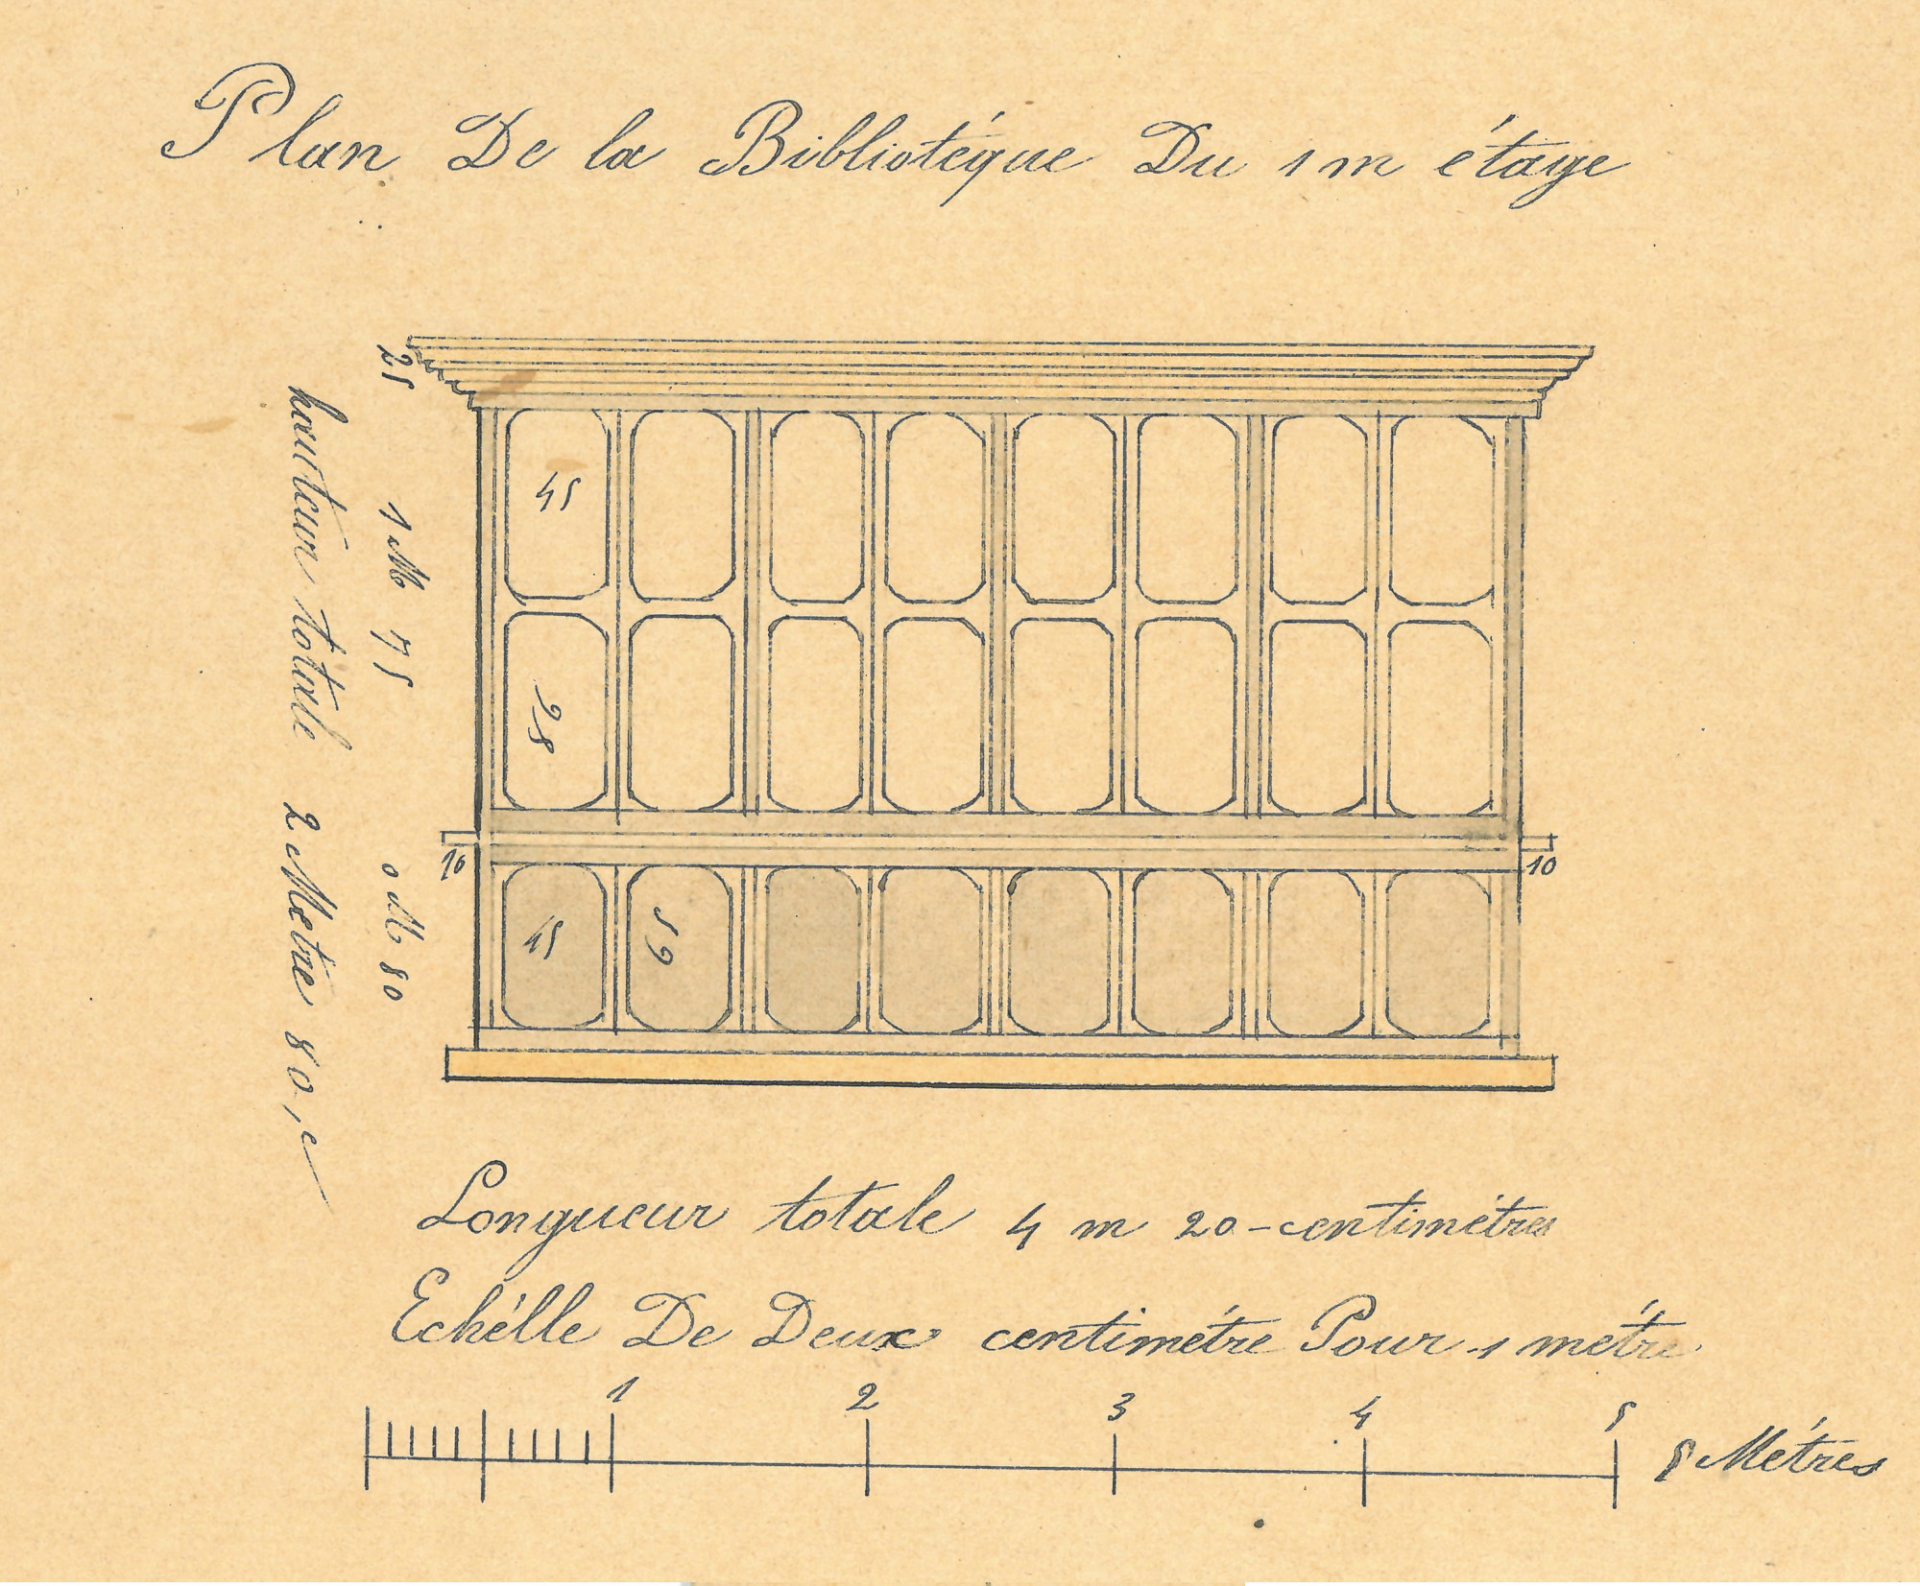 Plan De la Bibliotéque Du 1 m étage
25
1 M 75
0 M 80
hauteur totale 2 Metre 80, c
45
98
10
10
45
59
Longueur totale 4 m 20-centimétres
Echélle De Deux centimétre Pour 1 métre
1 2 3 4 5 5 Métres